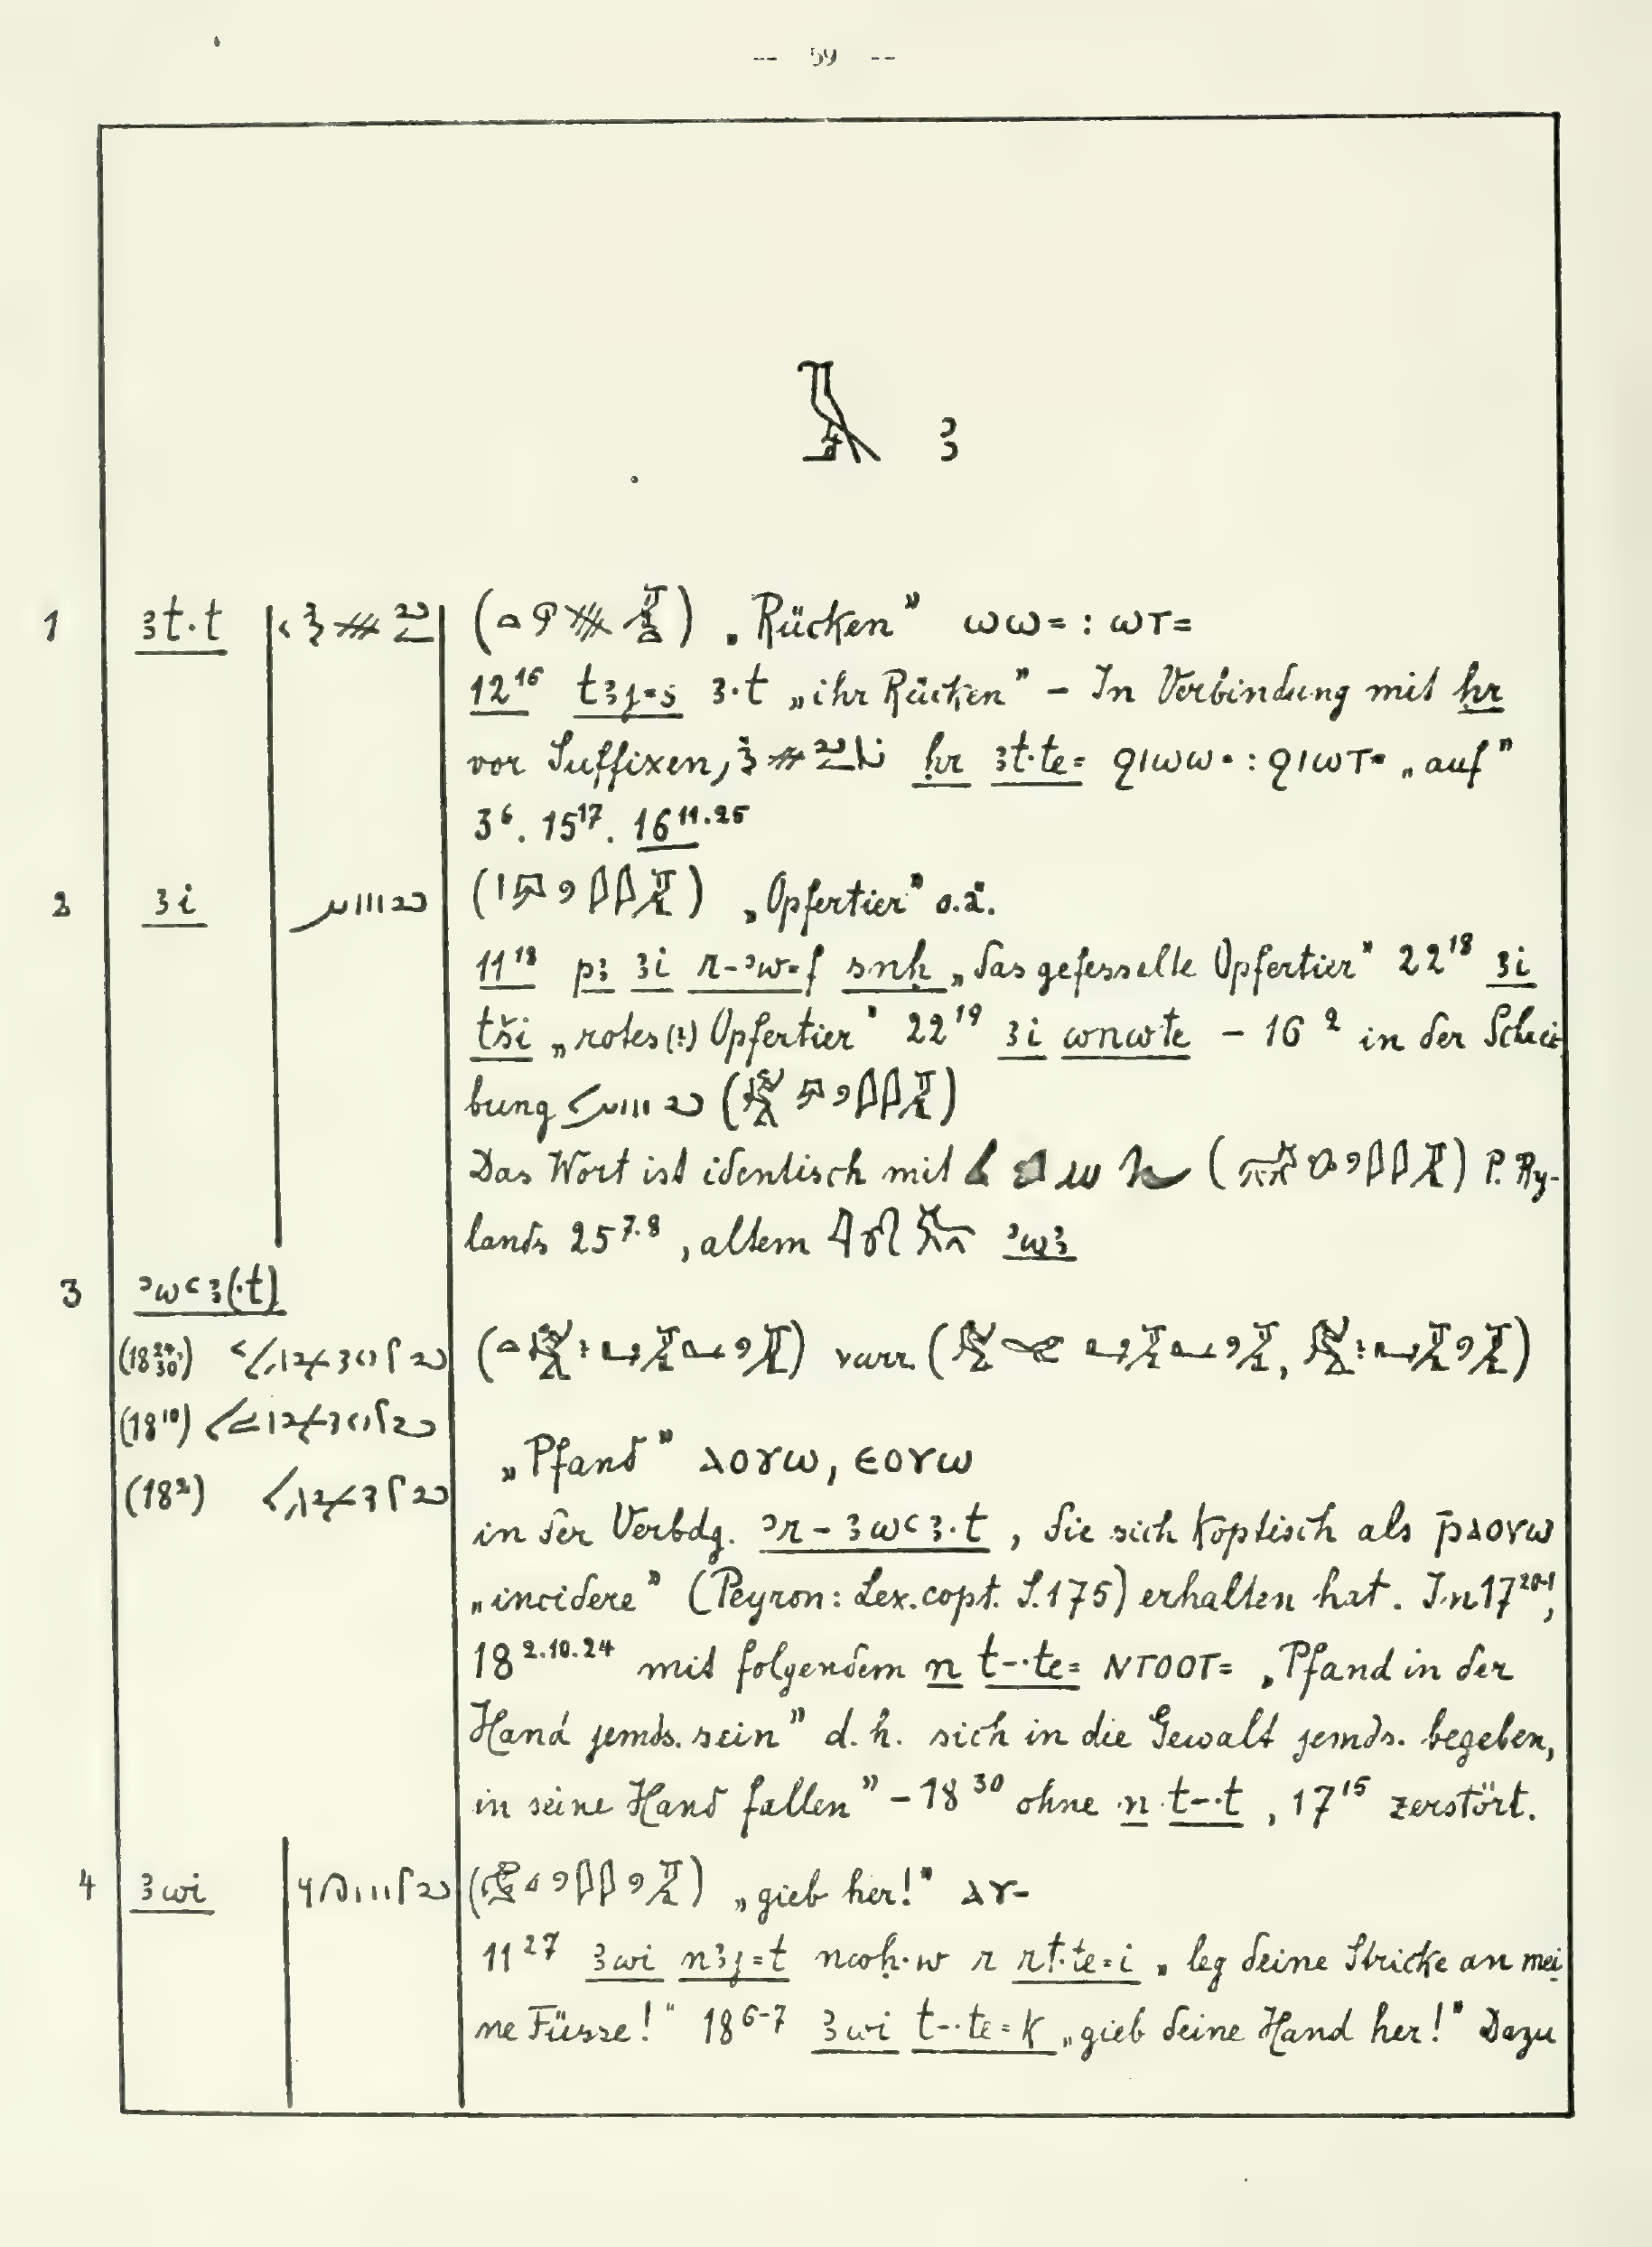 -- 59 --
𓄿 ꜣ
1 ꜣt·t „Rücken” ⲱⲱ= : ⲱⲧ=
12¹⁶ tꜣj=s ꜣ·t „ihr Rücken” – In Verbindung mit ḥr
vor Suffixen, ḥr ꜣt·te= ϩⲓⲱⲱ= : ϩⲓⲱⲧ= „auf”
3⁶. 15¹⁷. 16¹¹·²⁵
2 ꜣi „Opfertier” o.ä.
11¹⁸ pꜣ ꜣi r-ꜥw=f snḥ „das gefesselte Opfertier” 22¹⁸ ꜣi
tši „rotes(?) Opfertier” 22¹⁹ ꜣi wnwte – 16² in der Schrei
bung
Das Wort ist identisch mit P. Ry-
lands 25⁷·⁸, altem ꜥwꜣ
3 ꜥwꜥꜣ(·t)
(18²⁴·³⁰) varr.
(18¹⁰)
„Pfand” ⲁⲟⲩⲱ, ⲉⲟⲩⲱ
(18²)
in der Verbdg. ꜥr-ꜣwꜥꜣ·t, die sich koptisch als ⲣ̄ⲁⲟⲩⲱ
„incidere” (Peyron: Lex. copt. S. 175) erhalten hat. In 17²⁰⁻¹,
18²·¹⁰·²⁴ mit folgendem n t-·te= ⲛⲧⲟⲟⲧ= „Pfand in der
Hand jemds. sein” d. h. sich in die Gewalt jemds. begeben,
in seine Hand fallen” – 18³⁰ ohne n t-·t, 17¹⁵ zerstört.
4 ꜣwi „gieb her!” ⲁⲩ-
11²⁷ ꜣwi nꜣj=t nwḥ·w r rt·te=i „leg deine Stricke an mei
ne Füsse!” 18⁶⁻⁷ ꜣwi t-·te=k „gieb deine Hand her!” Dazu